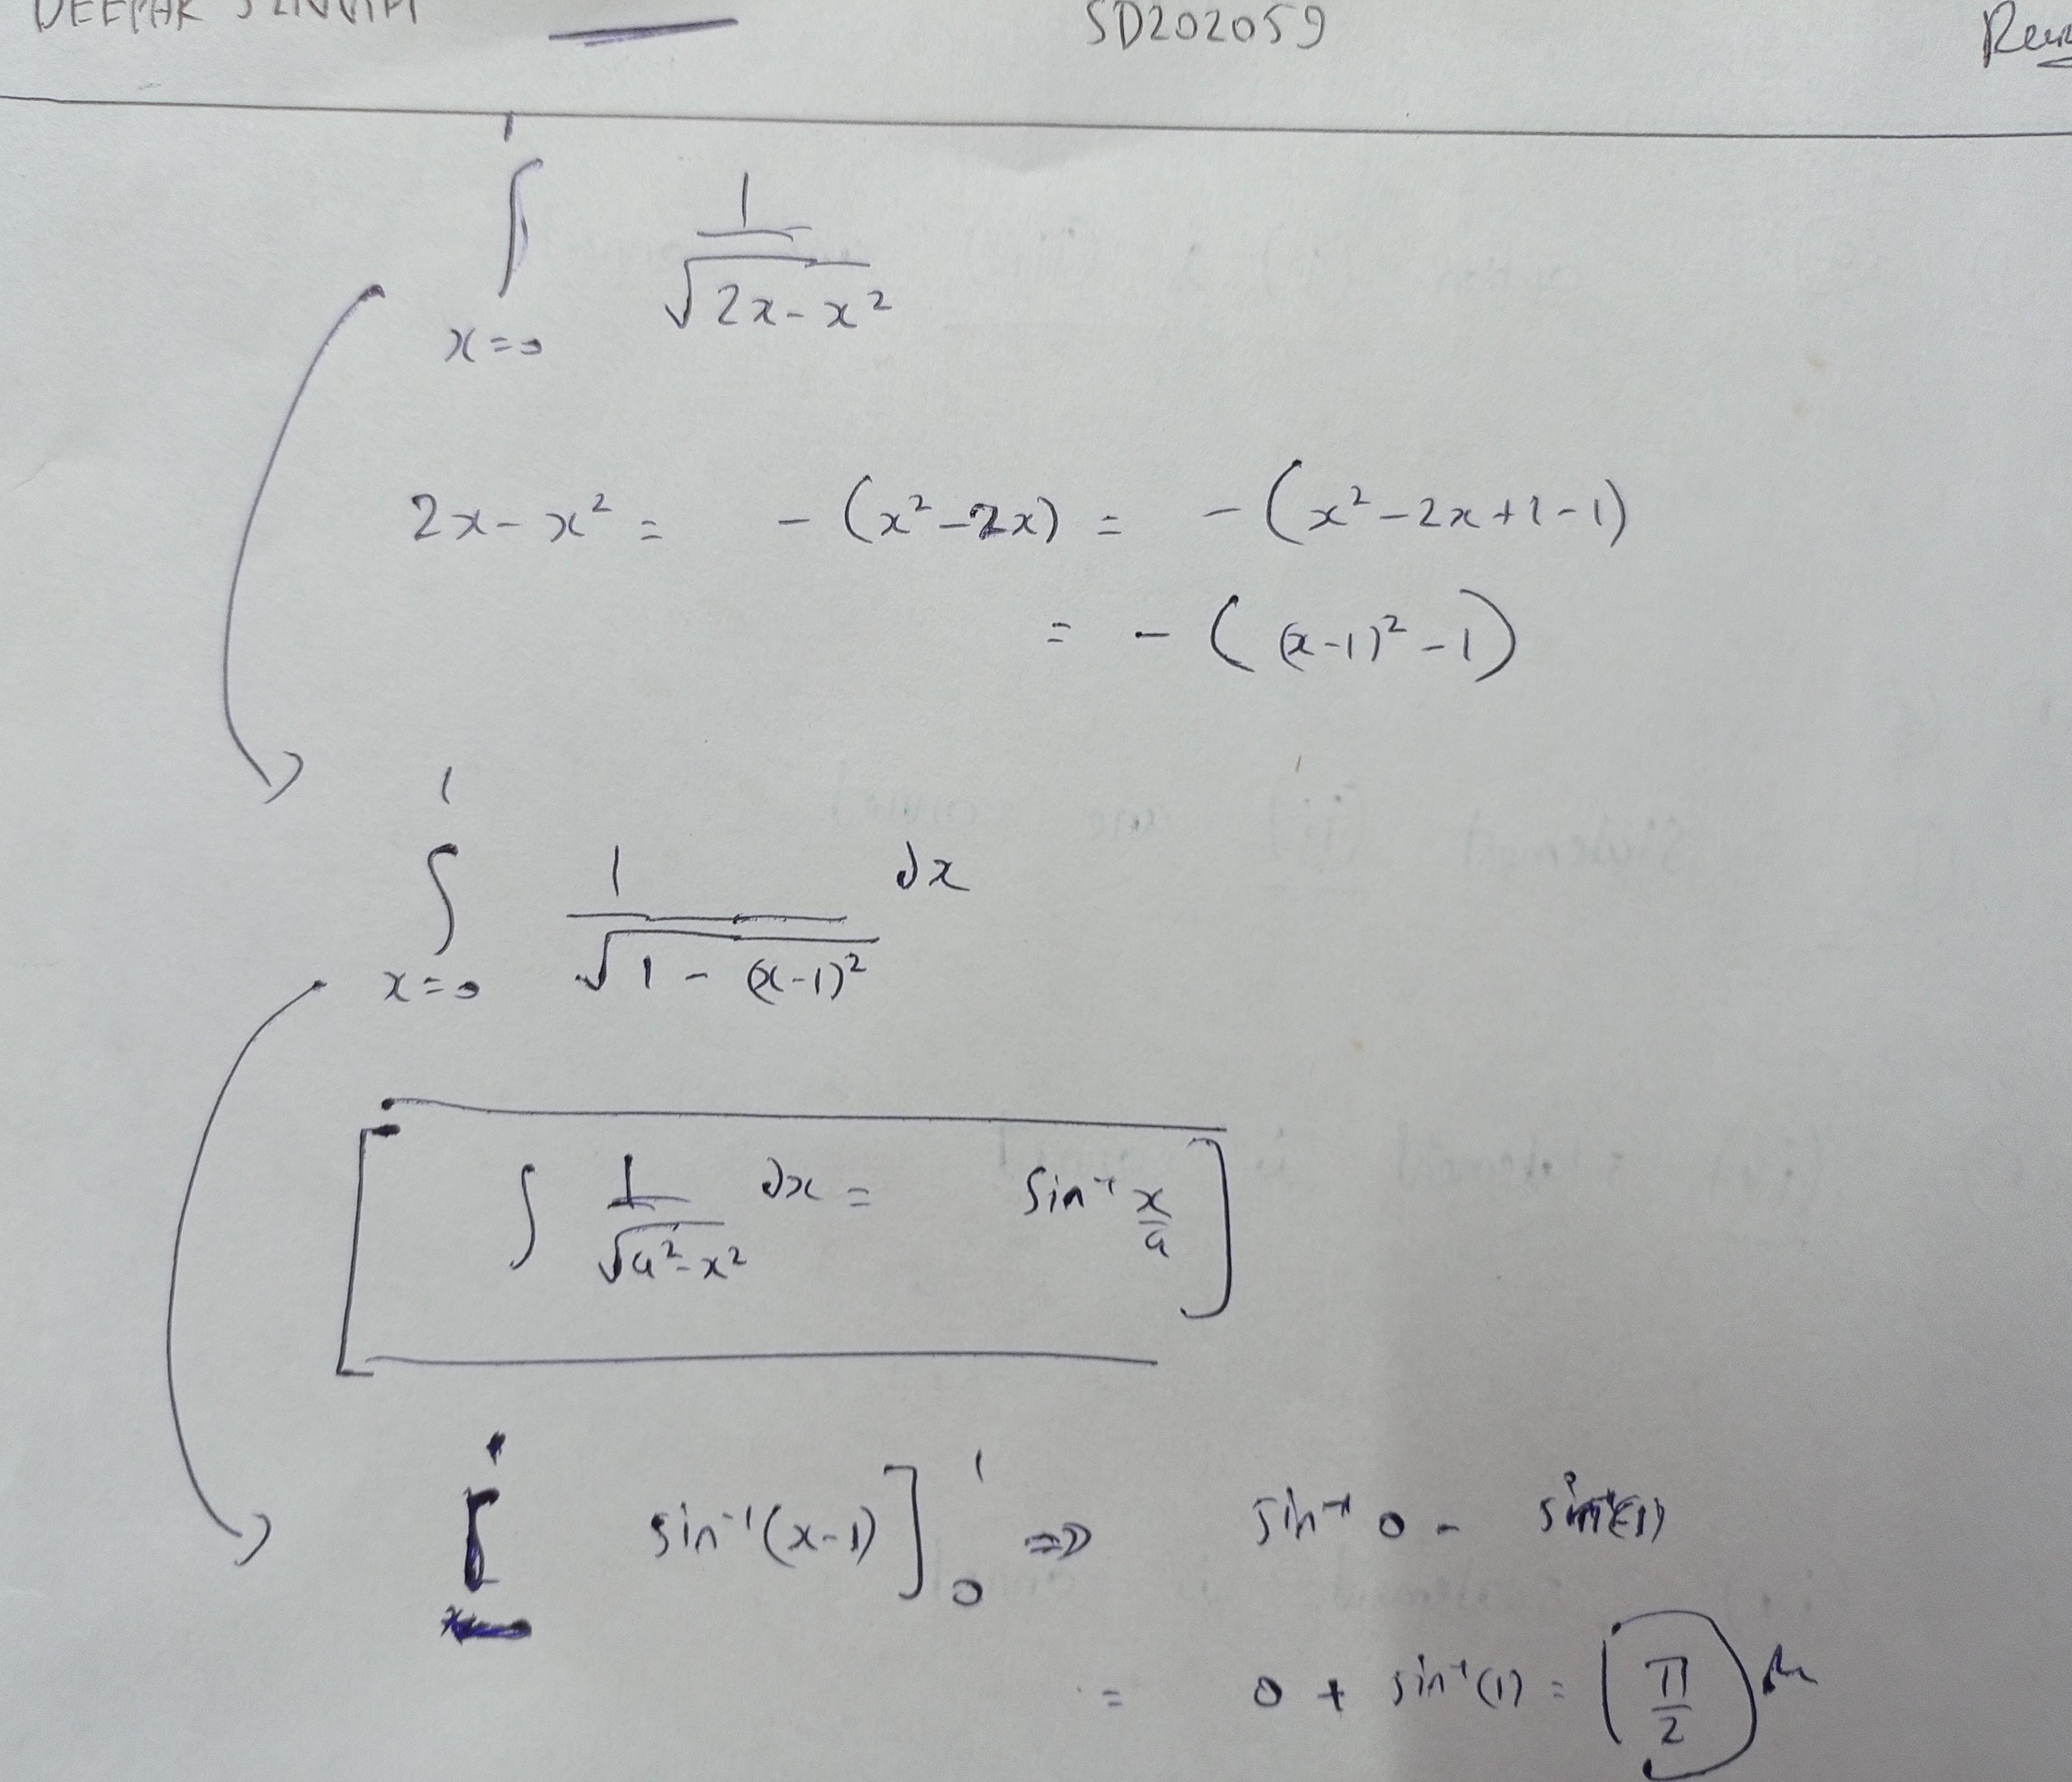 DEEPAK SD202059
1
∫ 1/√(2x-x²)
x=0
2x-x² = -(x²-2x) = -(x²-2x+1-1)
= -((x-1)²-1)
1
∫ 1/√(1-(x-1)²) dx
x=0
[∫ 1/√(a²-x²) dx = sin⁻¹ x/a]
sin⁻¹(x-1)]₀¹ ⇒ sin⁻¹ 0 - sin⁻¹(-1)
= 0 + sin⁻¹(1) = (π/2)